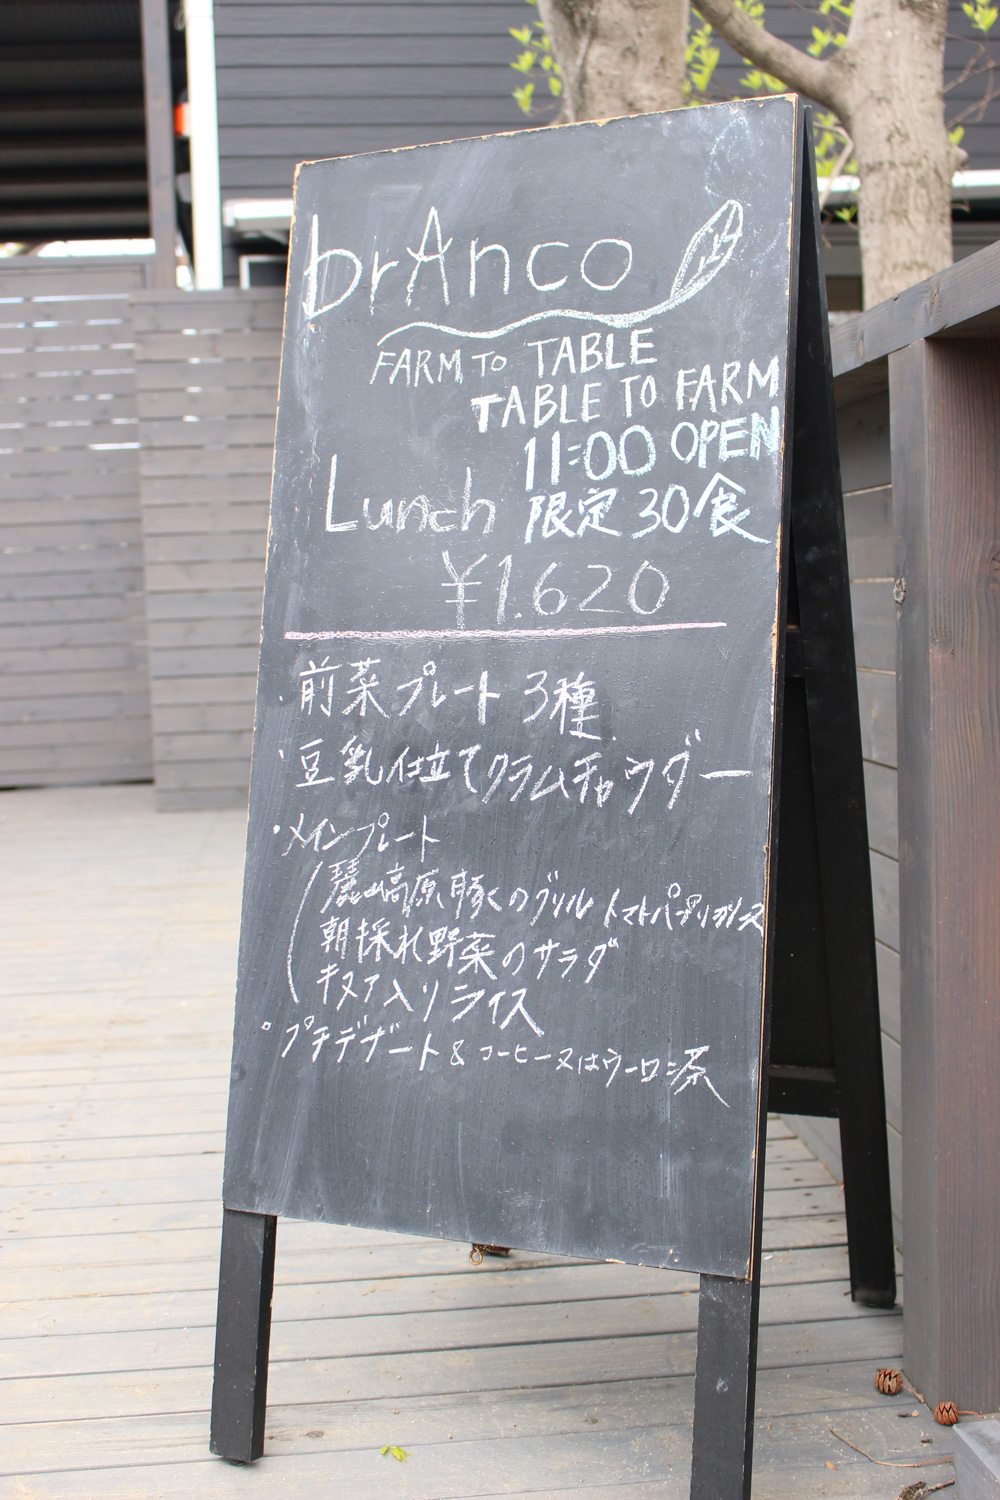 brAnco
FARM TO TABLE
TABLE TO FARM
11:00 OPEN
Lunch 限定30食
¥1.620
・前菜プレート 3種
・豆乳仕立てクラムチャウダー
・メインプレート
麓山高原豚のグリル トマトパプリカソース
朝採れ野菜のサラダ
キヌア入りライス
・プチデザート & コーヒー又はウーロン茶